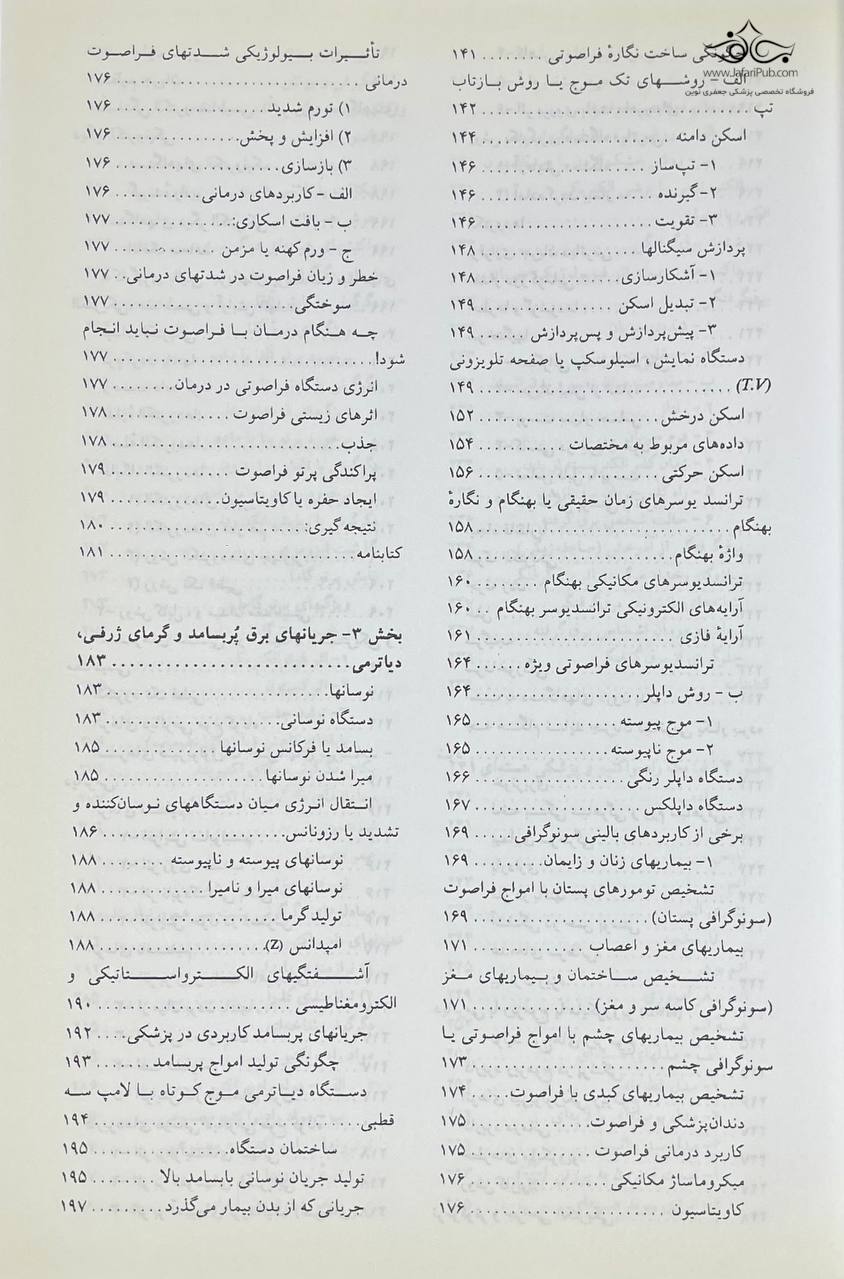 www.JafariPub.com
فروشگاه تخصصی پزشکی جعفری نوین
چگونگی ساخت نگارهٔ فراصوتی ........ ۱۴۱
الف - روشهای تک موج با روش بازتاب
تپ ................................ ۱۴۲
اسکن دامنه ........................ ۱۴۴
۱- تپ‌ساز ........................ ۱۴۶
۲-گیرنده ........................ ۱۴۶
۳- تقویت ........................ ۱۴۶
پردازش سیگنالها .................. ۱۴۸
۱- آشکارسازی .................... ۱۴۸
۲- تبدیل اسکن .................... ۱۴۹
۳- پیش‌پردازش و پس‌پردازش ...... ۱۴۹
دستگاه نمایش، اسیلوسکپ یا صفحه تلویزونی
(T.V) ............................ ۱۴۹
اسکن درخش ........................ ۱۵۲
داده‌های مربوط به مختصات .......... ۱۵۴
اسکن حرکتی ........................ ۱۵۶
ترانسد یوسرهای زمان حقیقی یا بهنگام و نگارهٔ
بهنگام ............................ ۱۵۸
واژهٔ بهنگام ...................... ۱۵۸
ترانسدیوسرهای مکانیکی بهنگام ........ ۱۶۰
آرایه‌های الکترونیکی ترانسدیوسر بهنگام .. ۱۶۰
آرایهٔ فازی ........................ ۱۶۱
ترانسدیوسرهای فراصوتی ویژه ...... ۱۶۴
ب - روش داپلر .................... ۱۶۴
۱- موج پیوسته .................... ۱۶۵
۲- موج ناپیوسته .................. ۱۶۵
دستگاه داپلر رنگی .................. ۱۶۶
دستگاه داپلکس .................... ۱۶۷
برخی از کاربردهای بالینی سونوگرافی ..... ۱۶۹
۱- بیماریهای زنان و زایمان .......... ۱۶۹
تشخیص تومورهای پستان با امواج فراصوت
(سونوگرافی پستان) .................. ۱۶۹
بیماریهای مغز و اعصاب .............. ۱۷۱
تشخیص ساختمان و بیماریهای مغز
(سونوگرافی کاسه سر و مغز) .......... ۱۷۱
تشخیص بیماریهای چشم با امواج فراصوتی یا
سونوگرافی چشم .................... ۱۷۳
تشخیص بیماریهای کبدی با فراصوت ..... ۱۷۴
دندان‌پزشکی و فراصوت .............. ۱۷۵
کاربرد درمانی فراصوت .............. ۱۷۵
میکروماساژ مکانیکی ................ ۱۷۶
کاویتاسیون ........................ ۱۷۶
تأثیرات بیولوژیکی شدتهای فراصوت
درمانی ............................ ۱۷۶
۱) تورم شدید ...................... ۱۷۶
۲) افزایش و پخش .................. ۱۷۶
۳) بازسازی ........................ ۱۷۶
الف - کاربردهای درمانی ............ ۱۷۶
ب - بافت اسکاری: .................. ۱۷۷
ج - ورم کهنه یا مزمن .............. ۱۷۷
خطر و زیان فراصوت در شدتهای درمانی .. ۱۷۷
سوختگی .......................... ۱۷۷
چه هنگام درمان با فراصوت نباید انجام
شود! .............................. ۱۷۷
انرژی دستگاه فراصوتی در درمان ........ ۱۷۷
اثرهای زیستی فراصوت .............. ۱۷۸
جذب .............................. ۱۷۸
پراکندگی پرتو فراصوت .............. ۱۷۹
ایجاد حفره یا کاویتاسیون ............ ۱۷۹
نتیجه گیری: ........................ ۱۸۰
کتابنامه ............................ ۱۸۱
بخش ۳- جریانهای برق پُربسامد و گرمای ژرفی،
دیاترمی ............................ ۱۸۳
نوسانها ............................ ۱۸۳
دستگاه نوسانی .................... ۱۸۳
بسامد یا فرکانس نوسانها ............ ۱۸۵
میرا شدن نوسانها .................. ۱۸۵
انتقال انرژی میان دستگاههای نوسان‌کننده و
تشدید یا رزونانس .................. ۱۸۶
نوسانهای پیوسته و ناپیوسته ........ ۱۸۸
نوسانهای میرا و نامیرا .............. ۱۸۸
تولید گرما ........................ ۱۸۸
امپدانس (Z) ...................... ۱۸۸
آشفتگیهای الکترواستاتیکی و
الکترومغناطیسی .................... ۱۹۰
جریانهای پربسامد کاربردی در پزشکی .... ۱۹۲
چگونگی تولید امواج پربسامد ........ ۱۹۳
دستگاه دیاترمی موج کوتاه با لامپ سه
قطبی .............................. ۱۹۴
ساختمان دستگاه .................. ۱۹۵
تولید جریان نوسانی بابسامد بالا ........ ۱۹۵
جریانی که از بدن بیمار می‌گذرد ........ ۱۹۷